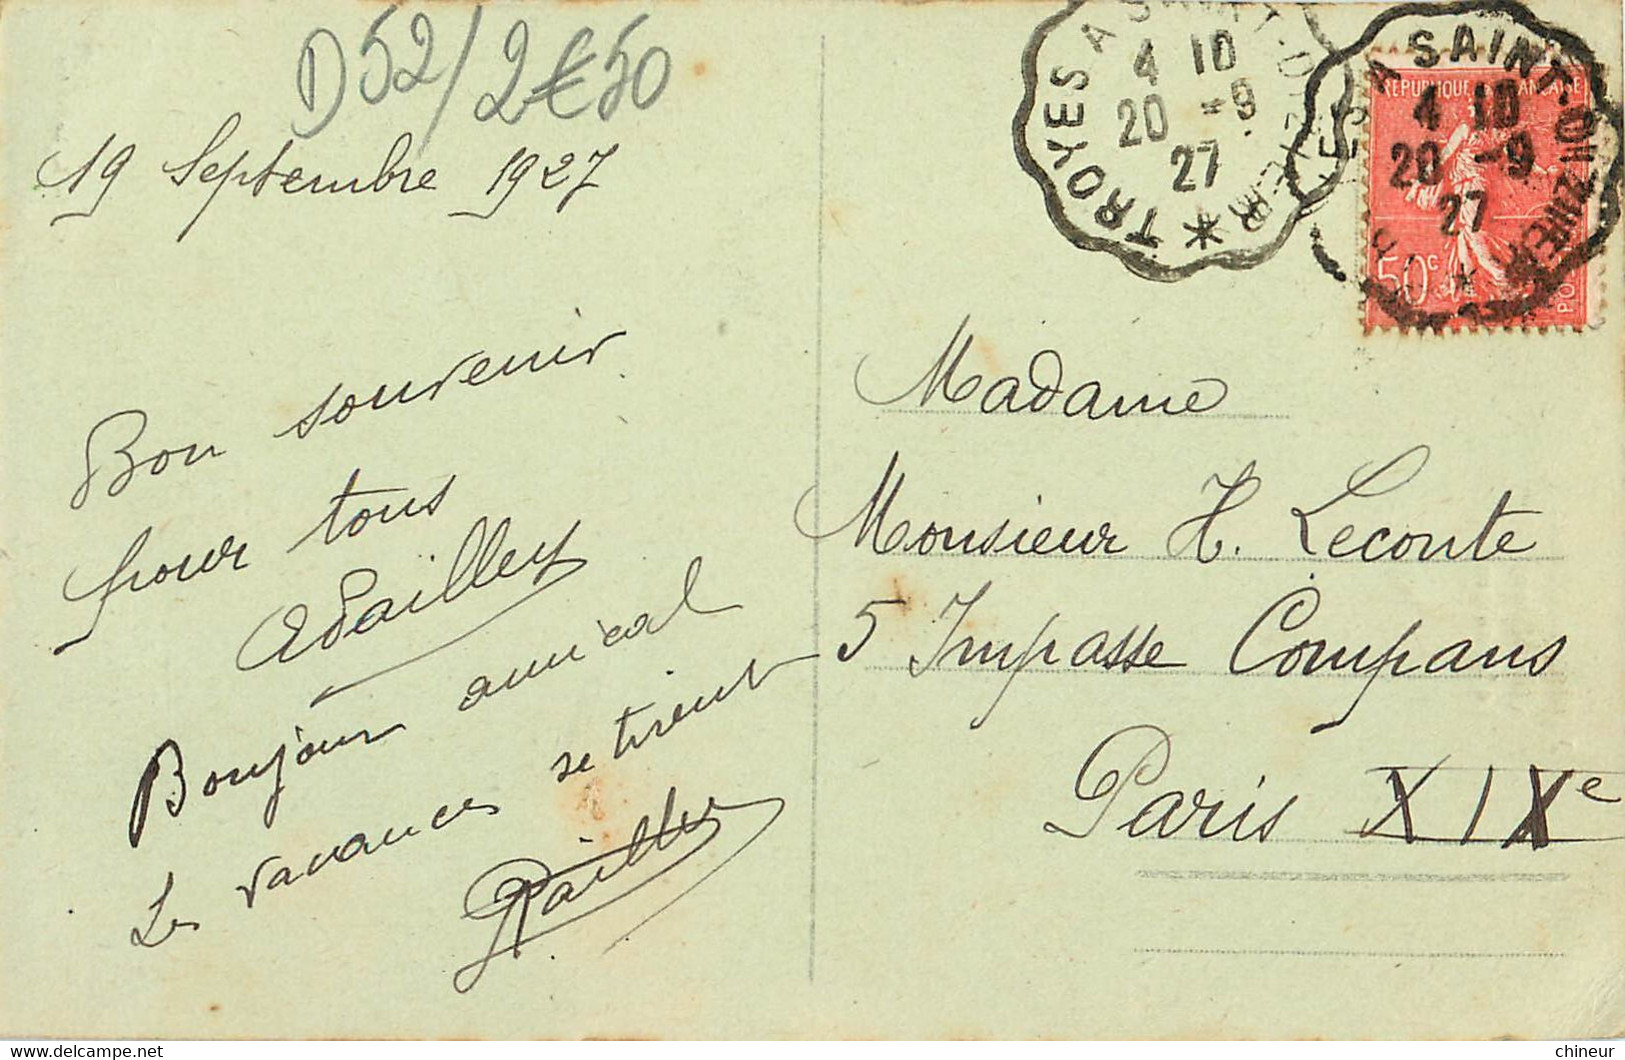 D52/2€50
19 Septembre 1927
Bon souvenir
pour tous
Bonjour amical
Les vacances se tirent
TROYES A SAINT-DIZIER
4 10
20 -9
27
A SAINT-DIZIER
4 10
20 -9
27
REPUBLIQUE FRANÇAISE
50c
Madame
Monsieur H. Leconte
5 Impasse Compans
Paris XIXe
chineur